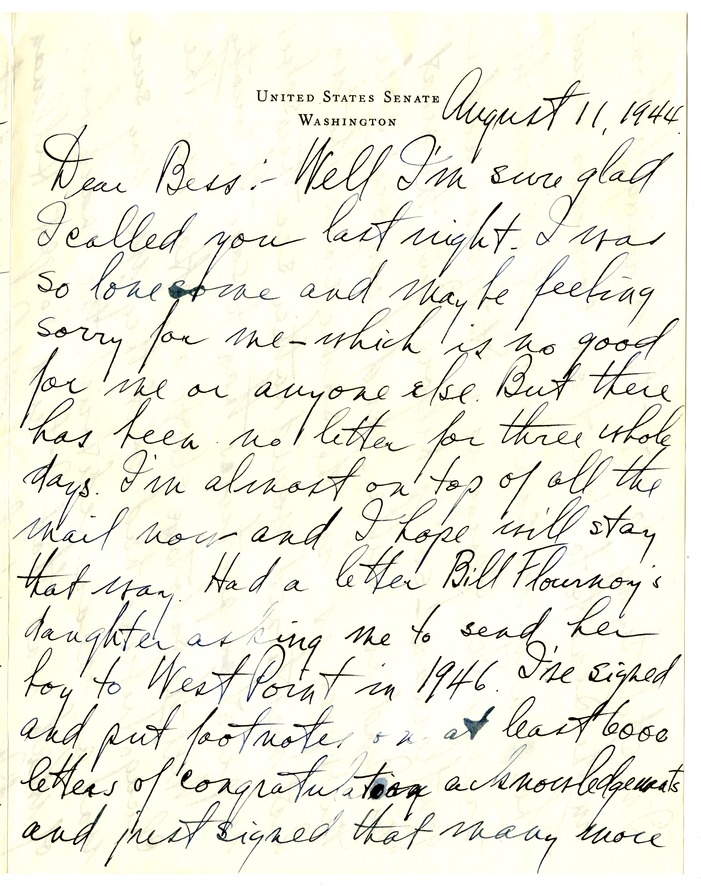 UNITED STATES SENATE
WASHINGTON
August 11, 1944.
Dear Bess:- Well I'm sure glad
I called you last night. I was
so lonesome and maybe feeling
sorry for me - which is no good
for me or anyone else. But there
has been no letter for three whole
days. I'm almost on top of all the
mail now and I hope will stay
that way. Had a letter Bill Flournoy's
daughter asking me to send her
boy to West Point in 1946. I've signed
and put footnotes on at least 6000
letters of congratulation acknowledgements
and just signed that many more